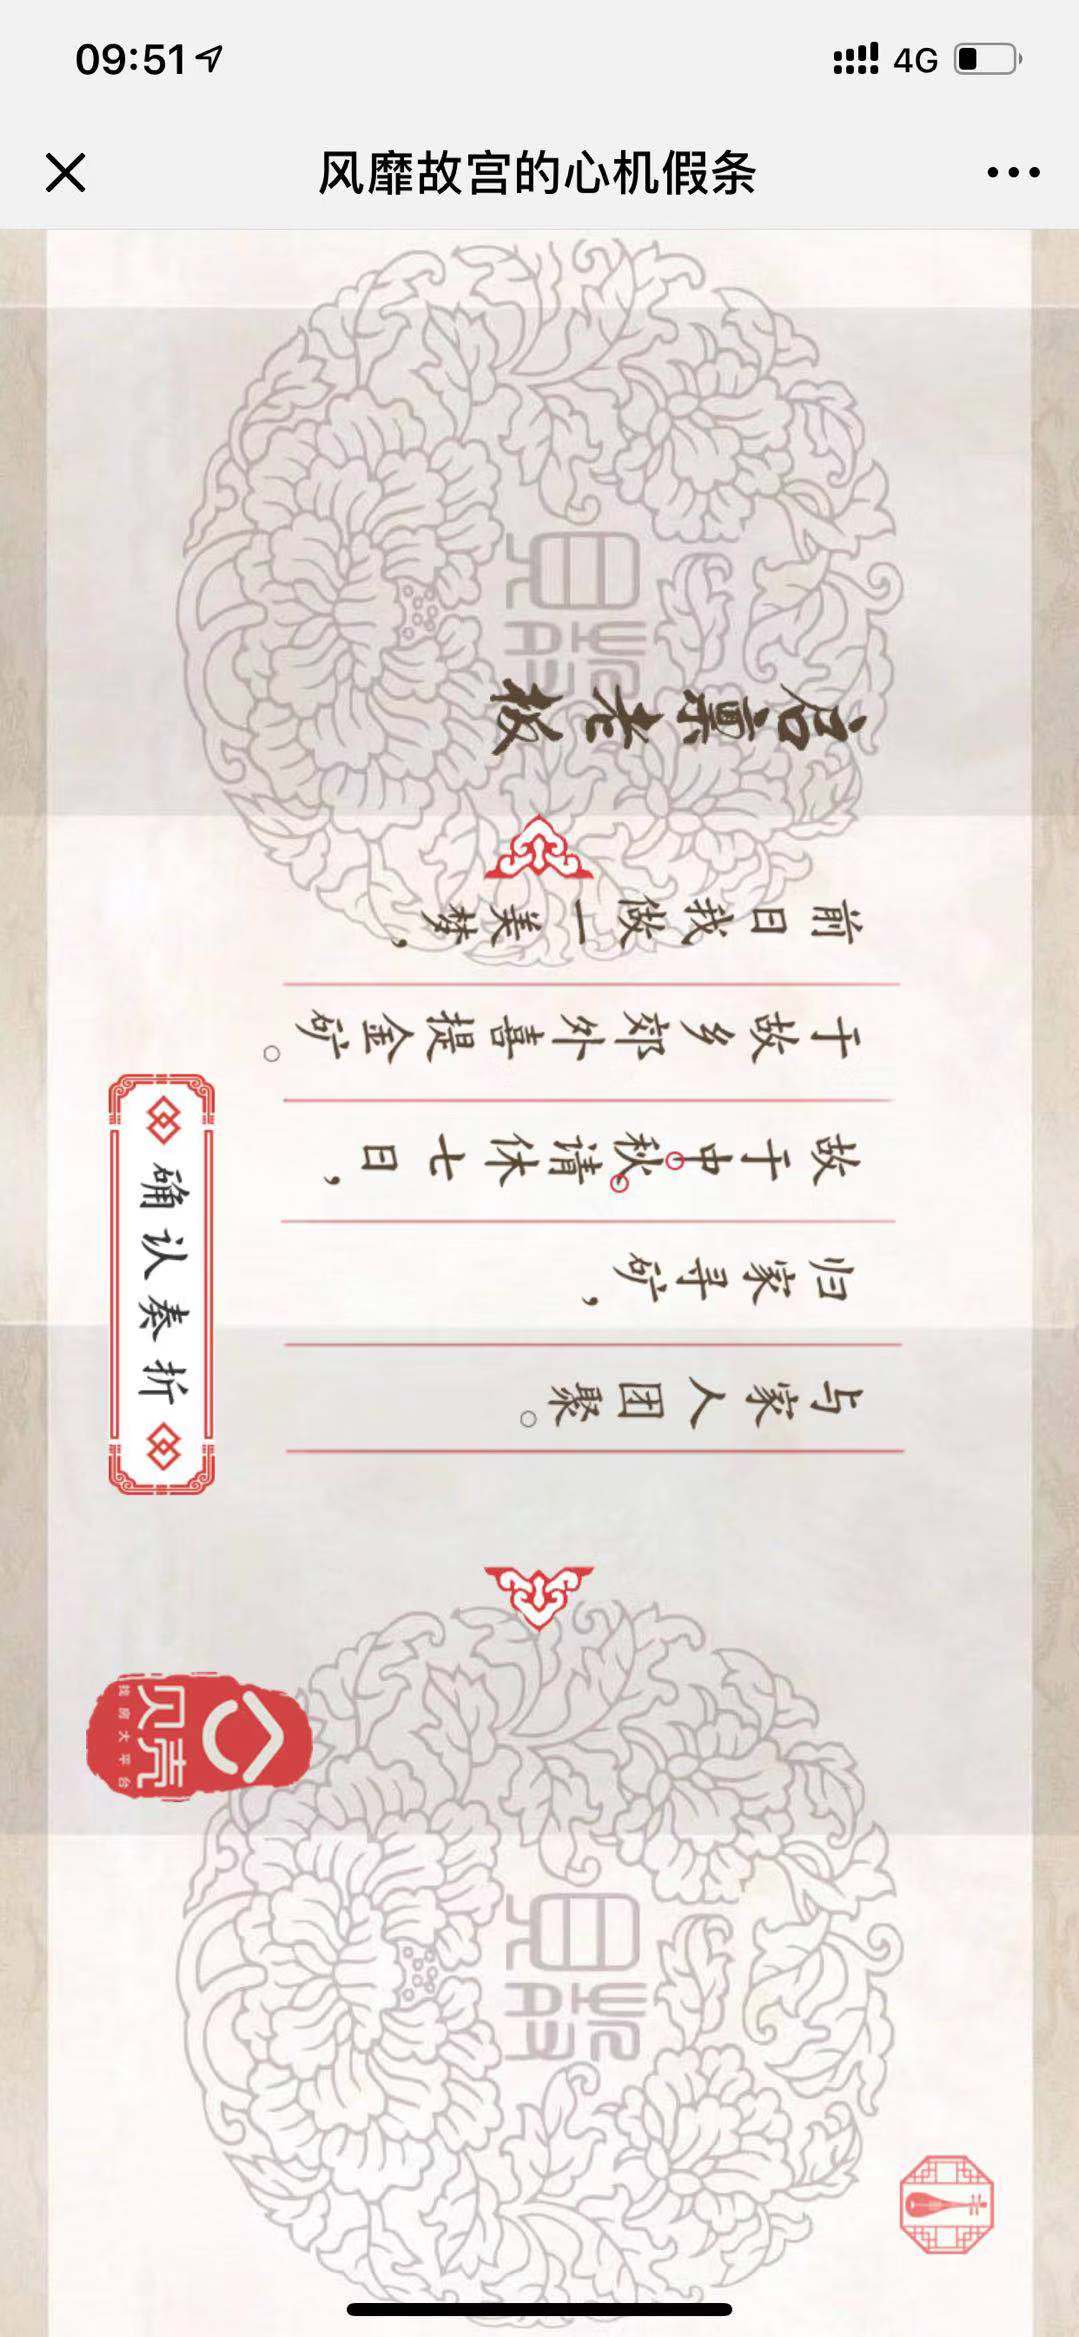 09:51
4G
风靡故宫的心机假条
启禀老板
前日我做一美梦，
于故乡郊外喜提金矿。
故于中秋。请休七日，
归家寻矿，
与家人团聚。
确认奏折
贝壳
找房大平台